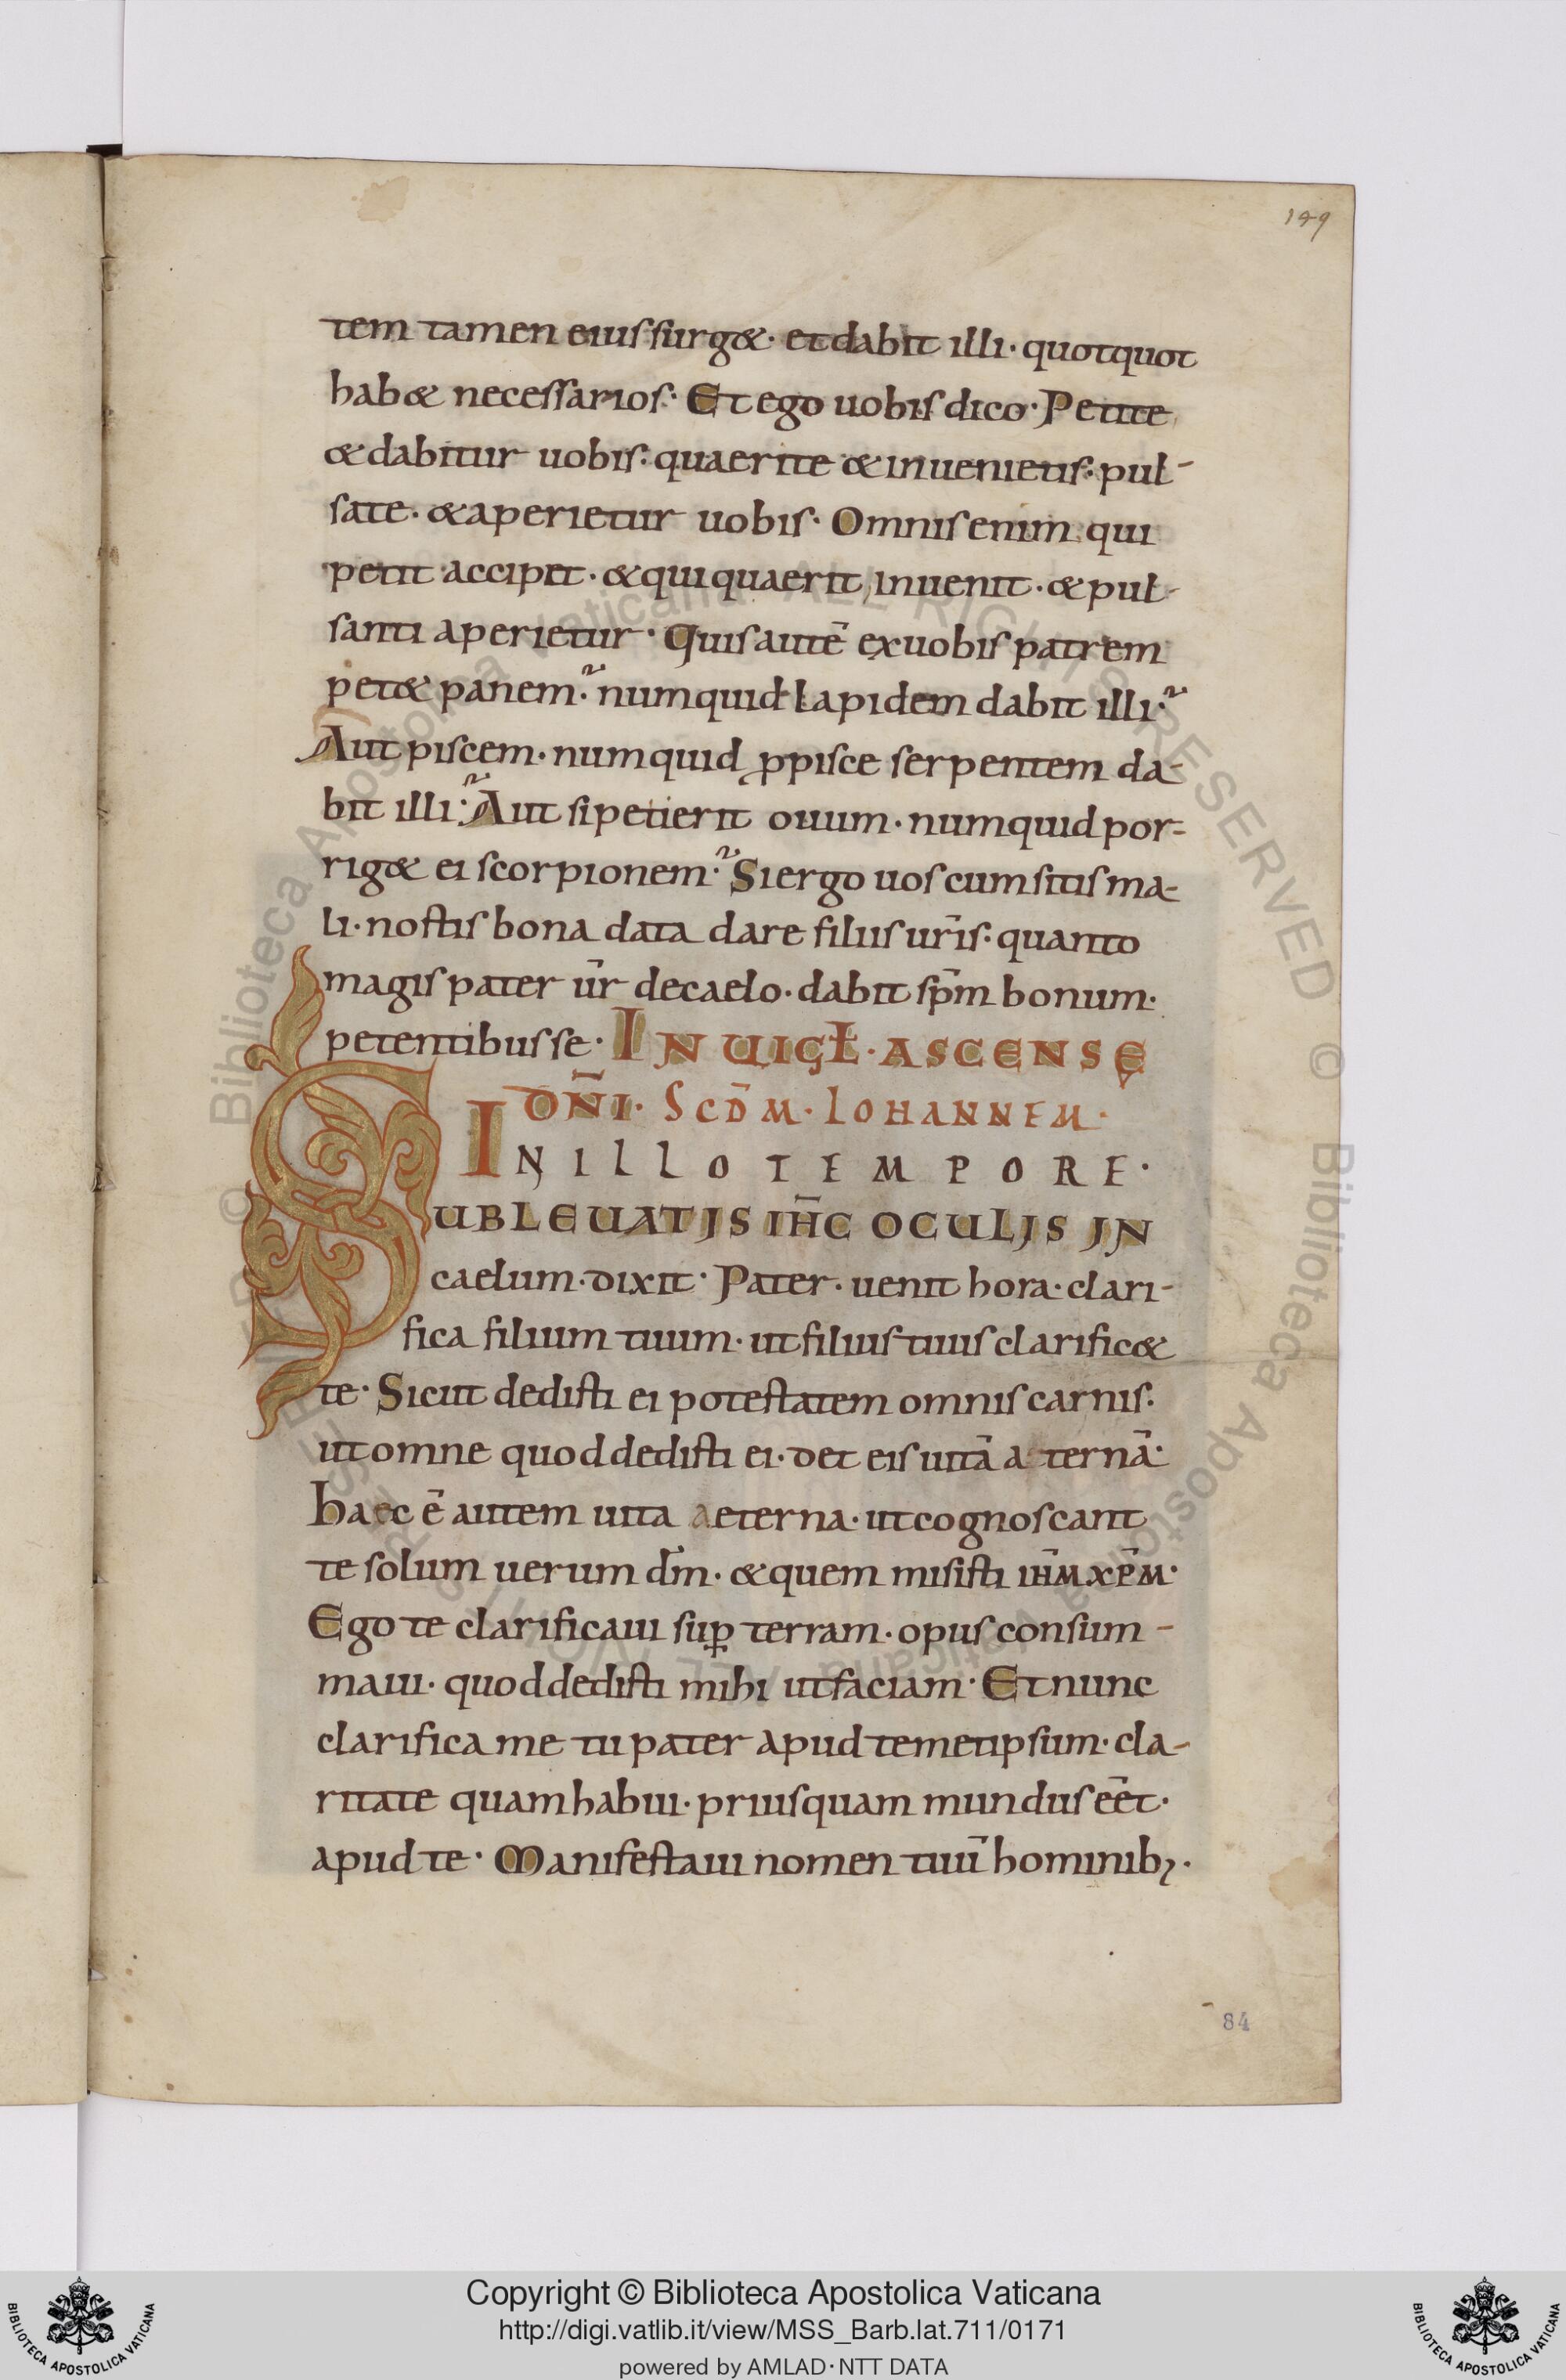 149
tem tamen eius surg&· et dabit illi· quotquot
hab& necessarios· Et ego uobis dico· Petite
& dabitur uobis: quaerite & inuenietis: pul-
sate· & aperietur uobis· Omnis enim qui
petit accipit· & qui quaerit inuenit· & pul-
santi aperietur· Quis autē ex uobis patrem
pet& panem? numquid lapidem dabit illi?
Aut piscem· numquid ꝓ pisce serpentem da-
bit illi? Aut si petierit ouum· numquid por-
rig& ei scorpionem? Si ergo uos cum sitis ma-
li· nostis bona data dare filiis ur̄is· quanto
magis pater ur̄ de caelo· dabit sp̄m bonum·
petentibus se· IN UIGŁ· ASCENSĘ
DN̄I· SCD̄M· IOHANNEM·
IN ILLO TEMPORE·
SUBLEUATIS IH̄C OCULIS IN
caelum· dixit· Pater· uenit hora· clari-
fica filium tuum· ut filius tuus clarific&
te· Sicut dedisti ei potestatem omnis carnis·
ut omne quod dedisti ei· det eis uitā a ternā·
haec ē autem uita aeterna· ut cognoscant
te solum uerum dm̄· & quem misisti ıh̄m xp̄m·
Ego te clarificaui suꝑ terram· opus consum-
maui· quod dedisti mihi ut faciam· Et nunc
clarifica me tu pater apud temetipsum· cla-
ritate quam habui· priusquam mundus eēt·
apud te· Manifestaui nomen tuū hominibꝫ·
84
© Biblioteca Apostolica Vaticana ALL RIGHTS RESERVED © Biblioteca Apostolica Vaticana ALL RIGHTS RESERVED
Copyright © Biblioteca Apostolica Vaticana
http://digi.vatlib.it/view/MSS_Barb.lat.711/0171
powered by AMLAD·NTT DATA
BIBLIOTECA APOSTOLICA VATICANA
BIBLIOTECA APOSTOLICA VATICANA